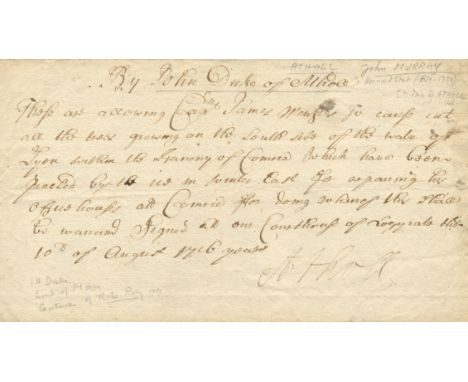 ATHOLL John MURRAY
By John Duke of Atholl
Thess are allowing Capt James Menzies to caus cut
all the trees growing on the South side of the water of
Lyon within the Baronny of Comrie which have been
peeled by the ice in winter last for repairing the
office houses at Comrie for doing whereof this shall
be warrand Signed at our Courthouse of Logyrate the
10th of August 1716 years
Atholl
1st Duke
Captor of Rob Roy 1717